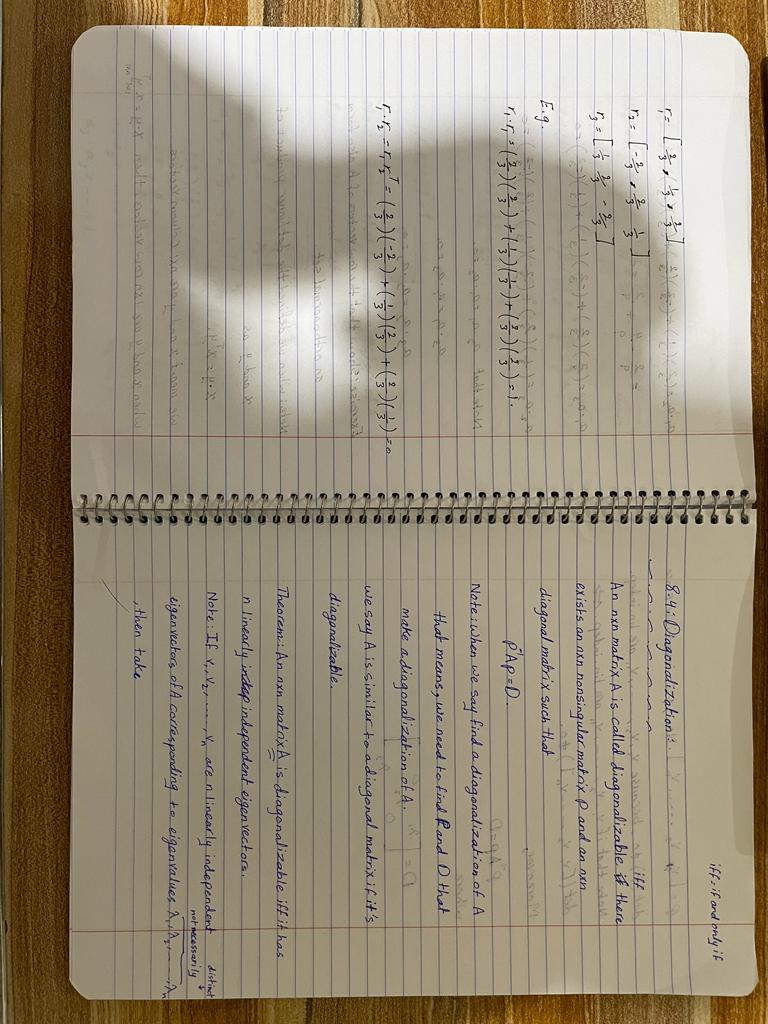 r₁ = [ 2/3 , 1/3 , 2/3 ]
r₂ = [ -2/3 , 2/3 1/3 ]
r₃ = [ 1/3 2/3 -2/3 ]
E.g.
r₁·r₁ = (2/3)(2/3) + (1/3)(1/3) + (2/3)(2/3) = 1.
r₁·r₂ = r₁r₂ᵀ = (2/3)(-2/3) + (1/3)(2/3) + (2/3)(1/3) = 0
iff = if and only if
8.4: Diagonalization:
An nxn matrix A is called diagonalizable iff there
exists an nxn nonsingular matrix P and an nxn
diagonal matrix such that
P⁻¹AP = D.
Note: when we say find a diagonalization of A
that means, we need to find P and D that
make a diagonalization of A.
we say A is similar to a diagonal matrix if it's
diagonalizable.
Theorem: An nxn matrix A is diagonalizable iff it has
n linearly independent eigenvectors.
Note: If v₁, v₂, ...., vₙ are n linearly independent
distinct
not necessarily
eigenvectors of A corresponding to eigenvalues λ₁, λ₂, ...., λₙ
, then take